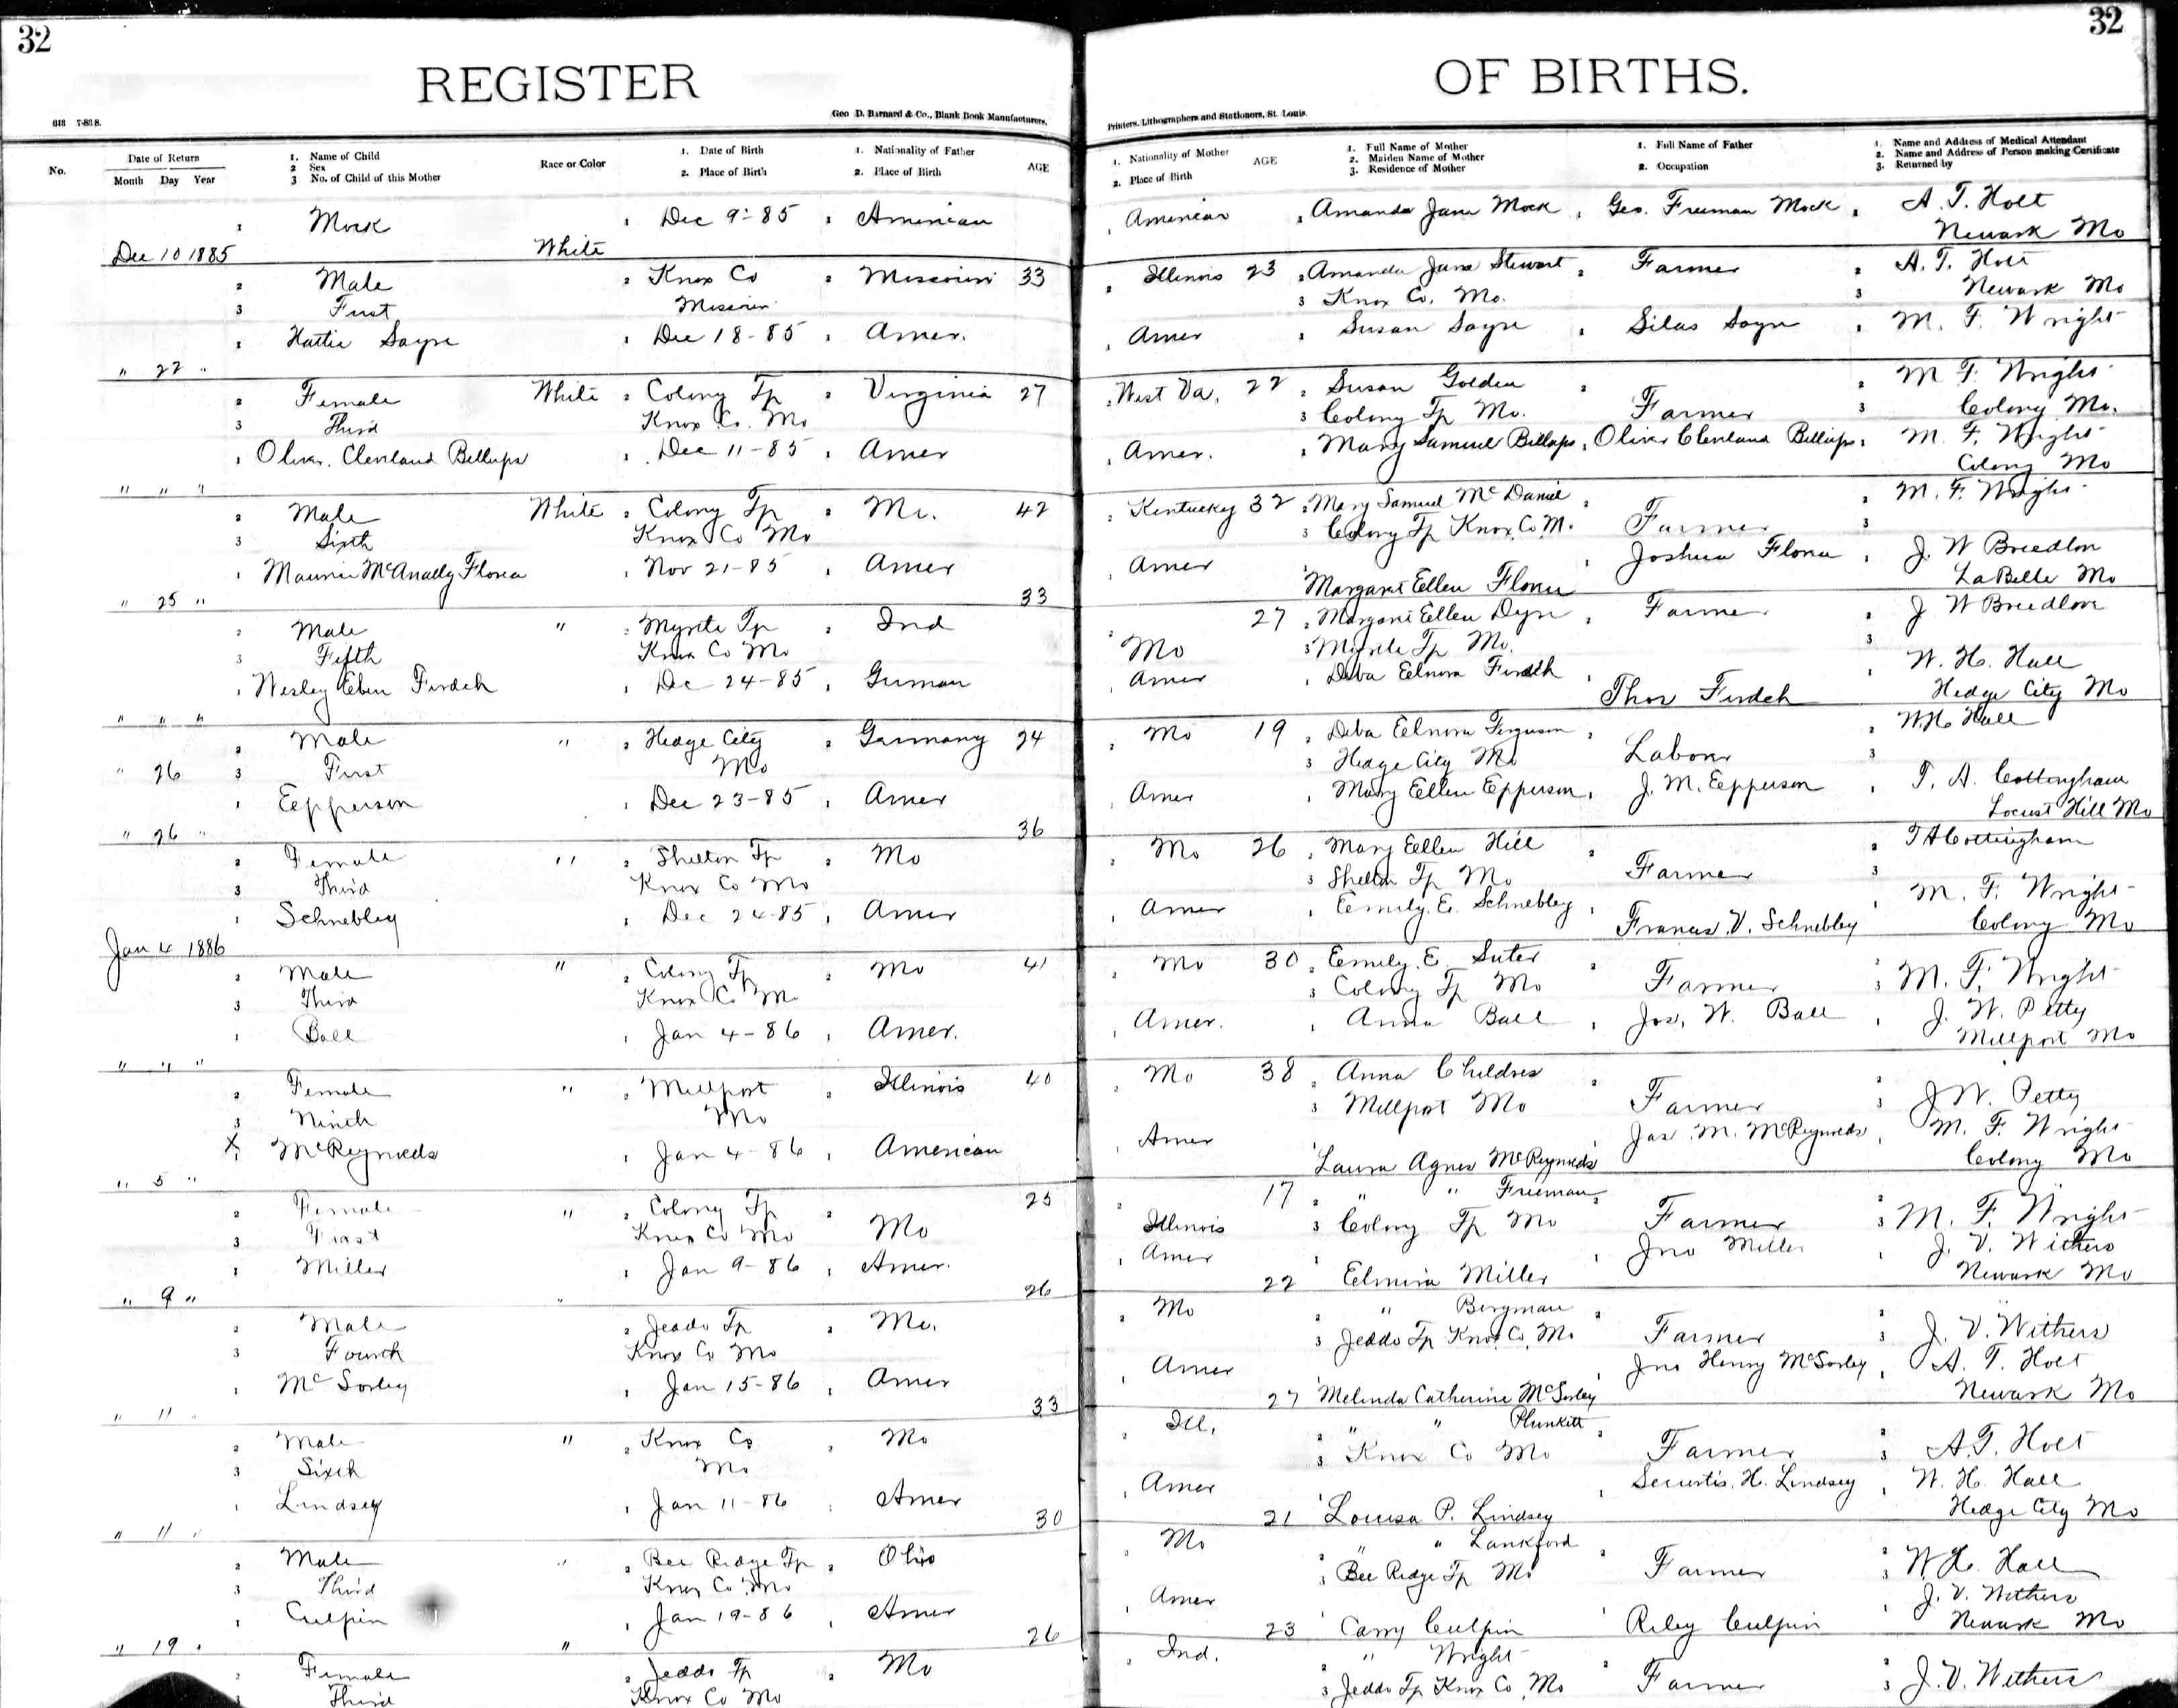 32 32
REGISTER OF BIRTHS.
618 7-85 S. Geo D. Barnard & Co., Blank Book Manufacturers, Printers, Lithographers and Stationers, St. Louis.
No. Date of Return 1. Name of Child Race or Color 1. Date of Birth 1. Nationality of Father AGE 1. Nationality of Mother AGE 1. Full Name of Mother 1. Full Name of Father 1. Name and Address of Medical Attendant
2 Sex 2. Maiden Name of Mother 2. Name and Address of Person making Certificate
Month Day Year 3 No. of Child of this Mother 2. Place of Birth 2. Place of Birth 2. Place of Birth 3. Residence of Mother 2. Occupation 3. Returned by
1 Mock 1 Dec 9-85 1 American 1 American 1 Amanda Jane Mock 1 Geo. Freeman Mock 1 A. T. Holt
Dec 10 1885 White Newark Mo
2 Male 2 Knox Co 2 Missouri 33 2 Illinois 23 2 Amanda Jane Stewart 2 Farmer 2 A. T. Holt
3 First Missouri 3 Knox Co. Mo. 3 Newark Mo
1 Hattie Sayre 1 Dec 18-85 1 Amer. 1 Amer 1 Susan Sayre 1 Silas Sayre 1 M. F. Wright
" 22 "
2 Female White 2 Colony Tp 2 Virginia 27 2 West Va. 22 2 Susan Golden 2 2 M F. Wright
3 Third Knox Co. Mo 3 Colony Tp Mo. Farmer 3 Colony Mo.
1 Oliver Cleveland Billups 1 Dec 11-85 1 Amer 1 Amer. 1 Mary Samuel Billups 1 Oliver Cleveland Billups 1 M. F. Wright
" " " Colony Mo
2 Male White 2 Colony Tp 2 Mo. 42 2 Kentucky 32 2 Mary Samuel McDaniel 2 Farmer 2 M. F. Wright
3 Sixth Knox Co Mo 3 Colony Tp Knox Co M. 3
1 McAnally Florea 1 Nov 21-85 1 Amer 1 Amer 1 Margaret Ellen Florea 1 Joshua Florea 1 J. W Breedlove
" 25 " 33 LaBelle Mo
2 Male " 2 Myrtle Tp 2 Ind 2 Mo 27 2 Margaret Ellen 2 Farmer 2 J W Breedlove
3 Fifth Knox Co Mo 3 Myrtle Tp Mo. 3
1 Wesley Eben Ferdeh 1 Dec 24-85 1 German 1 Amer 1 Elnora Ferdeh 1 Thos Ferdeh 1 W. H. Hall
" " " Hedge City Mo
2 Male " 2 Hedge City 2 Germany 24 2 Mo 19 2 Elnora Ferguson 2 Laborer 2 W. H. Hall
" 26 3 First Mo 3 Hedge City Mo 3
1 Epperson 1 Dec 23-85 1 Amer 1 Amer 1 Mary Ellen Epperson 1 J. M. Epperson 1 T. A. Cottingham
" 26 " 36 Locust Hill Mo
2 Female " 2 Shelton Tp 2 Mo 2 Mo 26 2 Mary Ellen Hill 2 Farmer 2 T A Cottingham
3 Third Knox Co Mo 3 Shelton Tp Mo 3
1 Schnebley 1 Dec 24-85 1 Amer 1 Amer 1 Emily E. Schnebley 1 Francis V. Schnebley 1 M. F. Wright
Jan 4 1886 Colony Mo
2 Male " 2 Colony Tp 2 Mo 41 2 Mo 30 2 Emily E. Suter 2 Farmer 2
3 Third Knox Co Mo 3 Colony Tp Mo 3 M. F. Wright
1 Ball 1 Jan 4-86 1 Amer. 1 Amer. 1 Anna Ball 1 Jos. W. Ball 1 J. W. Petty
" " " Millport Mo
2 Female " 2 Millport 2 Illinois 40 2 Mo 38 2 Anna Childres 2 Farmer 2
3 Ninth Mo 3 Millport Mo 3 J W. Petty
X 1 McReynolds 1 Jan 4-86 1 American 1 Amer 1 Laura Agnes McReynolds 1 Jas. M. McReynolds 1 M. F. Wright
" 5 " Colony Mo
2 Female " 2 Colony Tp 2 Mo 25 2 Illinois 17 2 " " Freeman 2 Farmer 2
3 First Knox Co Mo 3 Colony Tp Mo 3 M. F. Wright
1 Miller 1 Jan 9-86 1 Amer. 1 Amer 1 Elmira Miller 1 Jno Miller 1 J. V. Withers
" 9 " " 26 22 Newark Mo
2 Male 2 Jeddo Tp 2 Mo. 2 Mo 2 " Bergman 2 Farmer 2
3 Fourth Knox Co Mo 3 Jeddo Tp Knox Co. Mo 3 J. V. Withers
1 McSorley 1 Jan 15-86 1 Amer 1 Amer 1 Melinda Catherine McSorley 1 Jno Henry McSorley 1 A. T. Holt
" 11 " 33 27 Newark Mo
2 Male " 2 Knox Co 2 Mo 2 Ill. 2 " " Plunkett 2 Farmer 2
3 Sixth Mo 3 Knox Co Mo 3 A. T. Holt
1 Lindsey 1 Jan 11-86 1 Amer 1 Amer 1 Louisa P. Lindsey 1 H. Lindsey 1 W. H. Hall
" 11 " 30 21 Hedge City Mo
2 Male " 2 Bee Ridge Tp 2 Ohio 2 Mo 2 " " Lankford 2 Farmer 2
3 Third Knox Co Mo 3 Bee Ridge Tp Mo 3 W. H. Hall
1 Culpin 1 Jan 19-86 1 Amer 1 Amer 1 Carry Culpin 1 Riley Culpin 1 J. V. Withers
" 19 " " 26 23 Newark Mo
2 Female 2 Jeddo Tp 2 Mo 2 Ind. 2 " Wright 2 Farmer 2
3 Third Knox Co Mo 3 Jeddo Tp Knox Co. Mo 3 J. V. Withers